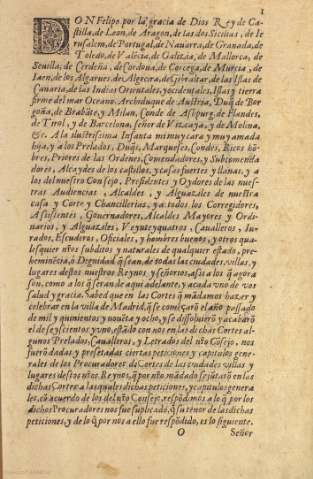 1
DON Felipo, por la gracia de Dios Rey de Castilla, de Leon, de Aragon, de las dos Sicilias, de Ierusalem, de Portugal, de Nauarra, de Granada, de
Toledo, de Valẽcia, de Galizia, de Mallorca, de
Seuilla, de Cerdeña, de Cordoua, de Corcega, de Murcia, de
Iaen, de los Algarues, de Algezira, de Gibraltar, de las Islas de
Canaria, de las Indias Orientales, y ocidentales, Islas y tierra
firme del mar Oceano, Archiduque de Austria, Duq̃ de Borgoña, de Brabãte, y Milan, Conde de Aspurg, de Flandes,
de Tirol, y de Barcelona, señor de Vizcaya, y de Molina,
&c. A la ilustrissima Infanta mi muy cara y muy amada
hija, y a los Prelados, Duq̃s, Marqueses, Condes, Ricos hõbres, Priores de las Ordenes, Comendadores, y Subcomendadores, Alcaydes de los castillos, y casas fuertes y llanas, y a
los del nuestro Consejo, Presidentes y Oydores de las nuestras Audiencias, Alcaldes, y Alguaziles de nuestra
casa y Corte y Chancillerias, y a todos los Corregidores,
Assistentes, Gouernadores, Alcaldes Mayores y Ordinarios, y Alguaziles, Veyntequatros, Caualleros, Iurados, Escuderos, Oficiales, y hombres buenos, y otros qualesquier nr̃os subditos y naturales de qualquier estado, preheminẽcia, ò Dignidad q̃ sean, de todas las ciudades, villas, y
lugares destos nuestros Reynos, y señorios, assi a los q̃ agora
son, como a los q̃ seran de aqui adelante, y a cada vno de vos
salud y gracia. Sabed que en las Cortes q̃ mãdamos hazer y
celebrar en la villa de Madrid, q̃ se començarõ el año passado
de mil y quinientos y nouẽta y ocho, y se dissoluierõ y acabarõ
el de seyscientos y vno, estãdo con nos en las dichas Cortes algunos Prelados, Caualleros, y Letrados del nr̃o Cõsejo, nos
fuerõ dadas y presẽtadas ciertas peticiones y capitulos generales de los Procuradores de Cortes de las ciudades villas y
lugares destos nr̃os Reynos, q̃ por nr̃o mãdado se jũtarõ en las
dichas Cortes: a las quales dichas peticiones, y capitulos generales, cõ acuerdo de los del nr̃o Consejo, respõdimos a lo q̃ por los
dichos Procuradores nos fue suplicado, q̃ su tenor de las dichas
peticiones, y de lo q̃ por nos a ello fue respõdido, es lo siguiente.
O Señor